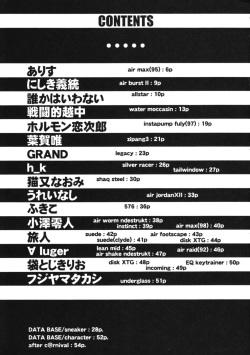 CONTENTS
ありす
air max(95) : 6p
にしき義統
air burst II : 9p
誰かはいわない
allstar : 10p
戦闘的越中
water moccasin : 13p
ホルモン恋次郎
instapump fuly(97) : 19p
葉賀唯
zipang3 : 21p
GRAND
legacy : 23p
h_k
silver racer : 26p
tailwindow : 27p
猫又なおみ
shaq steel : 30p
うれいなし
air jordanXII : 33p
ふきこ
576 : 36p
小澤零人
air worm ndestrukt : 38p
instinct : 39p
air max(98) : 40p
旅人
suede : 42p
air footscape : 43p
suede(clyde) : 41p
disk XTG : 44p
∀ luger
lean mid : 45p
air raid(92) : 46p
air ndestrukt : 47p
袋とじきりお
disk XTG : 48p
EQ keytrainer : 50p
incoming : 49p
フジヤマタカシ
underglass : 51p
DATA BASE/sneaker : 28p.
DATA BASE/character : 52p.
after c@rnival : 54p.